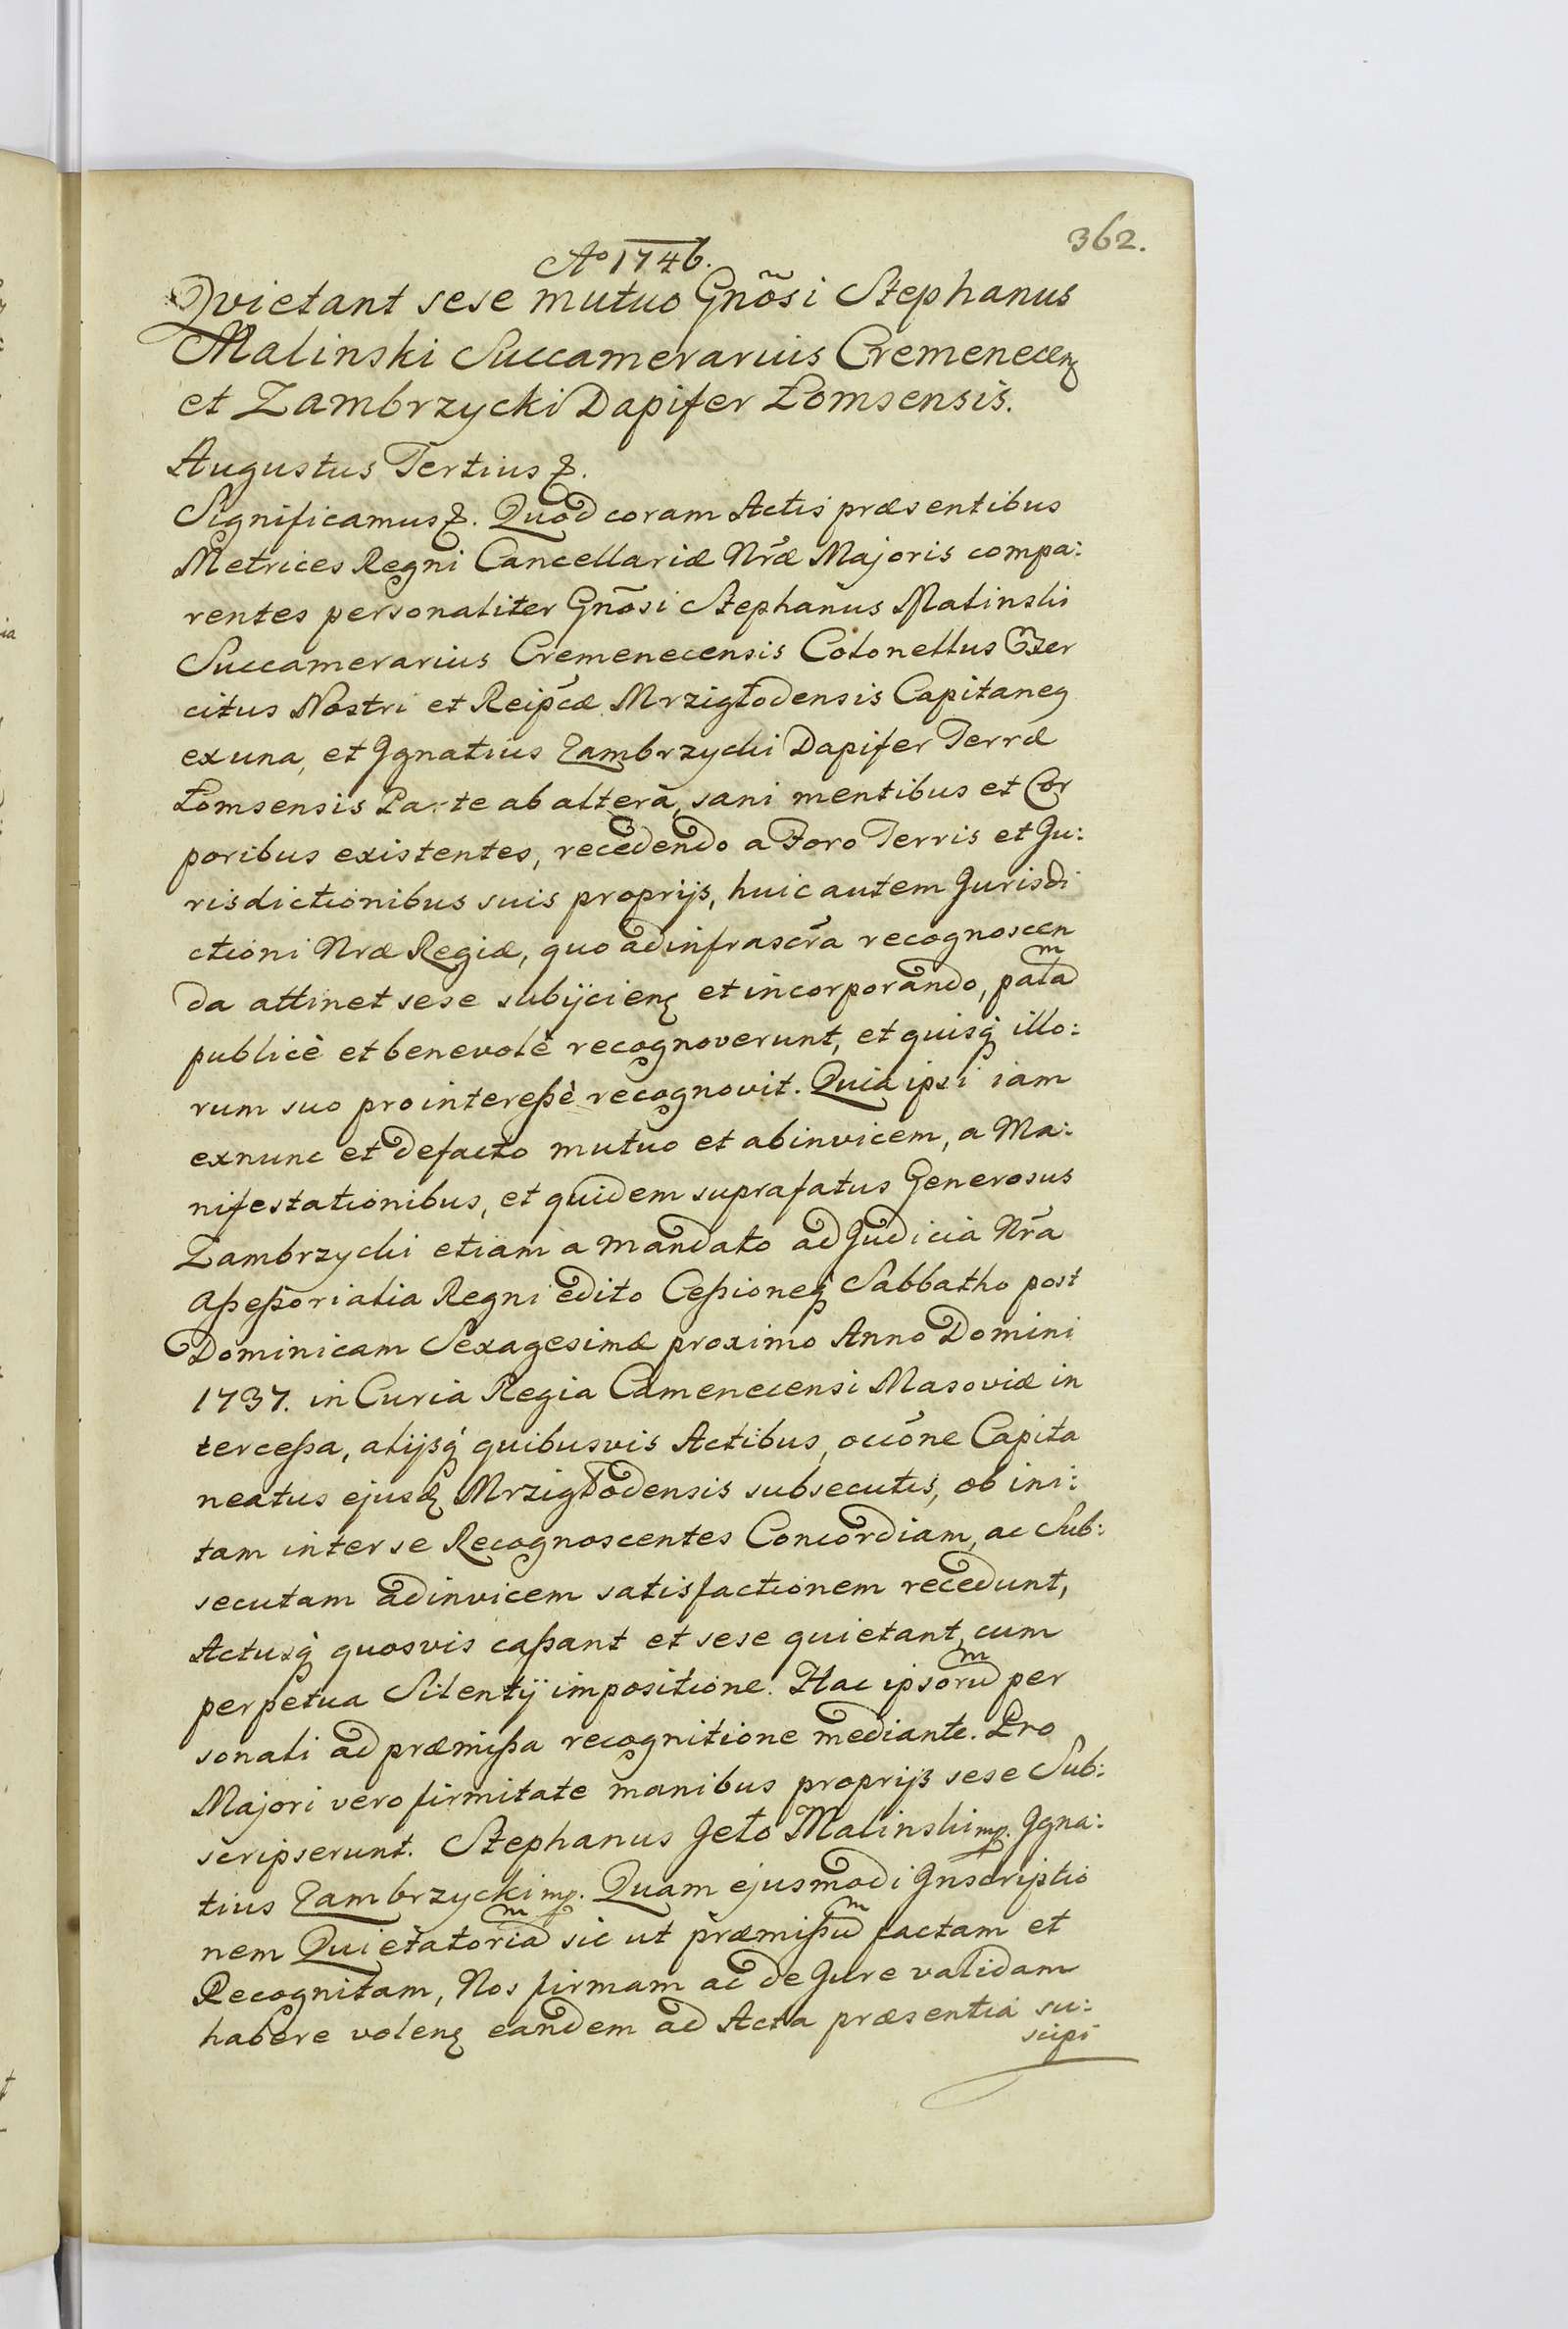 362.
Ao 1746.
Qvietant sese mutuo Gnõsi Stephanus
Malinski Succamerarius Cremenecen
et Zambrzycki Dapifer Łomsensis.
Augustus Tertius &.
Significamus &. Quod coram Actis præsentibus
Metrices Regni Cancellariæ Nræ Majoris compa:
rentes personaliter Gnõsi Stephanus Malinski
Succamerarius Cremenecensis Colonellus Exer
citus Nostri et Reipcæ Mrzigłodensis Capitaneq
ex una, et Ignatius Zambrzycki Dapifer Terræ
Łomsensis Parte ab alterà, sani mentibus et Cor
poribus existentes, recedendo a Foro Terris et Ju:
risdictionibus suis proprijs, huic autem Jurisdi
ctioni Nræ Regiæ, quo ad infrascra recognoscen
da attinet sese subijcien et incorporando, palam
publicè et benevolè recognoverunt, et quisq illo:
rum suo pro interesßè recognovit. Quia ipsi iam
exnunc et defacto mutuo et abinvicem, a Ma:
nifestationibus, et quidem suprafatus Generosus
Zambrzycki etiam a mandato ad Judicia Nra
Aßeßorialia Regni edito Ceßioneq Sabbatho post
Dominicam Sexagesimæ proximo Anno Domini
1737. in Curia Regia Camenecensi Masoviæ in
terceßa, alijsq quibusvis Actibus, occõne Capita
neatus ejusd Mrzigłodensis subsecutis, ob ini:
tam inter se Recognoscentes Concordiam, ac Sub:
secutam adinvicem satisfactionem recedunt,
Actusq quosvis caßant et sese quietant, cum
perpetua Silentij impositione. Hac ipsorum per
sonali ad præmißa recognitione mediante. Pro
Majori vero firmitate manibus proprijs sese Sub:
scripserunt. Stephanus Jeło Malinski mp. Igna:
tius Zambrzycki mp. Quam ejusmodi Inscriptio
nem Quietatoriam sic ut præmißum factam et
Recognitam, Nos firmam ac de Jure validam
habere volen eandem ad Acta præsentia su:
scipi